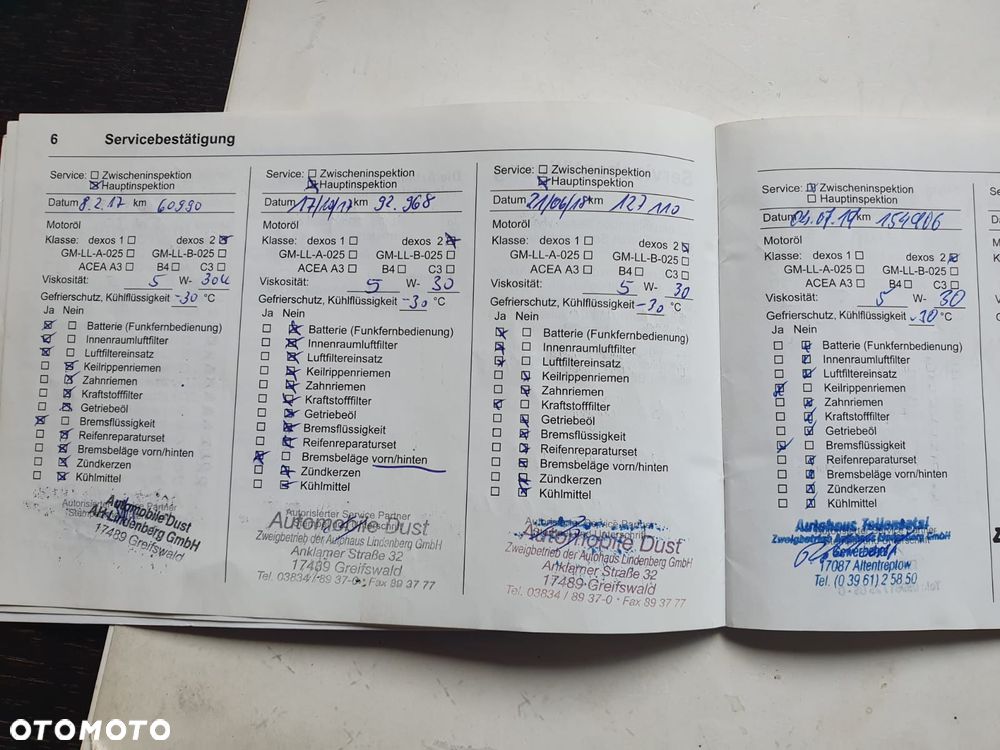 6 Servicebestätigung
Service: Zwischeninspektion
Hauptinspektion
Datum 8.2.17 km 60990
Motoröl
Klasse: dexos 1 dexos 2
GM-LL-A-025 GM-LL-B-025
ACEA A3 B4 C3
Viskosität: 5 W- 30
Gefrierschutz, Kühlflüssigkeit -30 °C
Ja Nein
Batterie (Funkfernbedienung)
Innenraumluftfilter
Luftfiltereinsatz
Keilrippenriemen
Zahnriemen
Kraftstofffilter
Getriebeöl
Bremsflüssigkeit
Reifenreparaturset
Bremsbeläge vorn/hinten
Zündkerzen
Kühlmittel
Automobile Dust
AH Lindenberg GmbH
17489 Greifswald
Service: Zwischeninspektion
Hauptinspektion
Datum km 92.968
Motoröl
Klasse: dexos 1 dexos 2
GM-LL-A-025 GM-LL-B-025
ACEA A3 B4 C3
Viskosität: 5 W- 30
Gefrierschutz, Kühlflüssigkeit -30 °C
Ja Nein
Batterie (Funkfernbedienung)
Innenraumluftfilter
Luftfiltereinsatz
Keilrippenriemen
Zahnriemen
Kraftstofffilter
Getriebeöl
Bremsflüssigkeit
Reifenreparaturset
Bremsbeläge vorn/hinten
Zündkerzen
Kühlmittel
Autorisierter Service Partner
Automobile Dust
Zweigbetrieb der Autohaus Lindenberg GmbH
Anklamer Straße 32
17489 Greifswald
Tel. 03834 / 89 37-0 • Fax 89 37 77
Service: Zwischeninspektion
Hauptinspektion
Datum 21/06/18 km 123 110
Motoröl
Klasse: dexos 1 dexos 2
GM-LL-A-025 GM-LL-B-025
ACEA A3 B4 C3
Viskosität: 5 W- 30
Gefrierschutz, Kühlflüssigkeit -30 °C
Ja Nein
Batterie (Funkfernbedienung)
Innenraumluftfilter
Luftfiltereinsatz
Keilrippenriemen
Zahnriemen
Kraftstofffilter
Getriebeöl
Bremsflüssigkeit
Reifenreparaturset
Bremsbeläge vorn/hinten
Zündkerzen
Kühlmittel
Automobile Dust
Zweigbetrieb der Autohaus Lindenberg GmbH
Anklamer Straße 32
17489 Greifswald
Tel. 03834 / 89 37-0 • Fax 89 37 77
Service: Zwischeninspektion
Hauptinspektion
Datum 04.07.19 km 154906
Motoröl
Klasse: dexos 1 dexos 2
GM-LL-A-025 GM-LL-B-025
ACEA A3 B4 C3
Viskosität: 5 W- 30
Gefrierschutz, Kühlflüssigkeit °C
Ja Nein
Batterie (Funkfernbedienung)
Innenraumluftfilter
Luftfiltereinsatz
Keilrippenriemen
Zahnriemen
Kraftstofffilter
Getriebeöl
Bremsflüssigkeit
Reifenreparaturset
Bremsbeläge vorn/hinten
Zündkerzen
Kühlmittel
Autohaus Tollensetal
Zweigbetrieb Autohaus Lindenberg GmbH
17087 Altentreptow
Tel. (0 39 61) 2 58 50
OTOMOTO